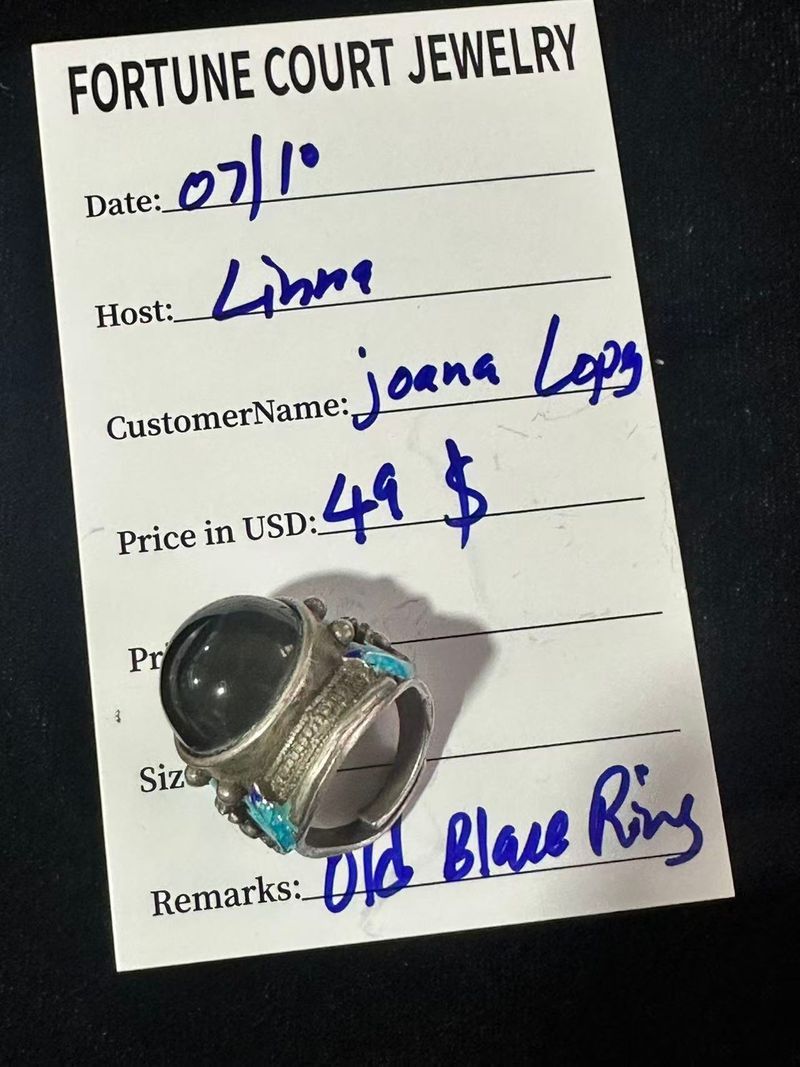 FORTUNE COURT JEWELRY
Date: 07/10
Host: Linna
CustomerName: joana
Price in USD: 49 $
Pr
Siz
Remarks: Old Ring